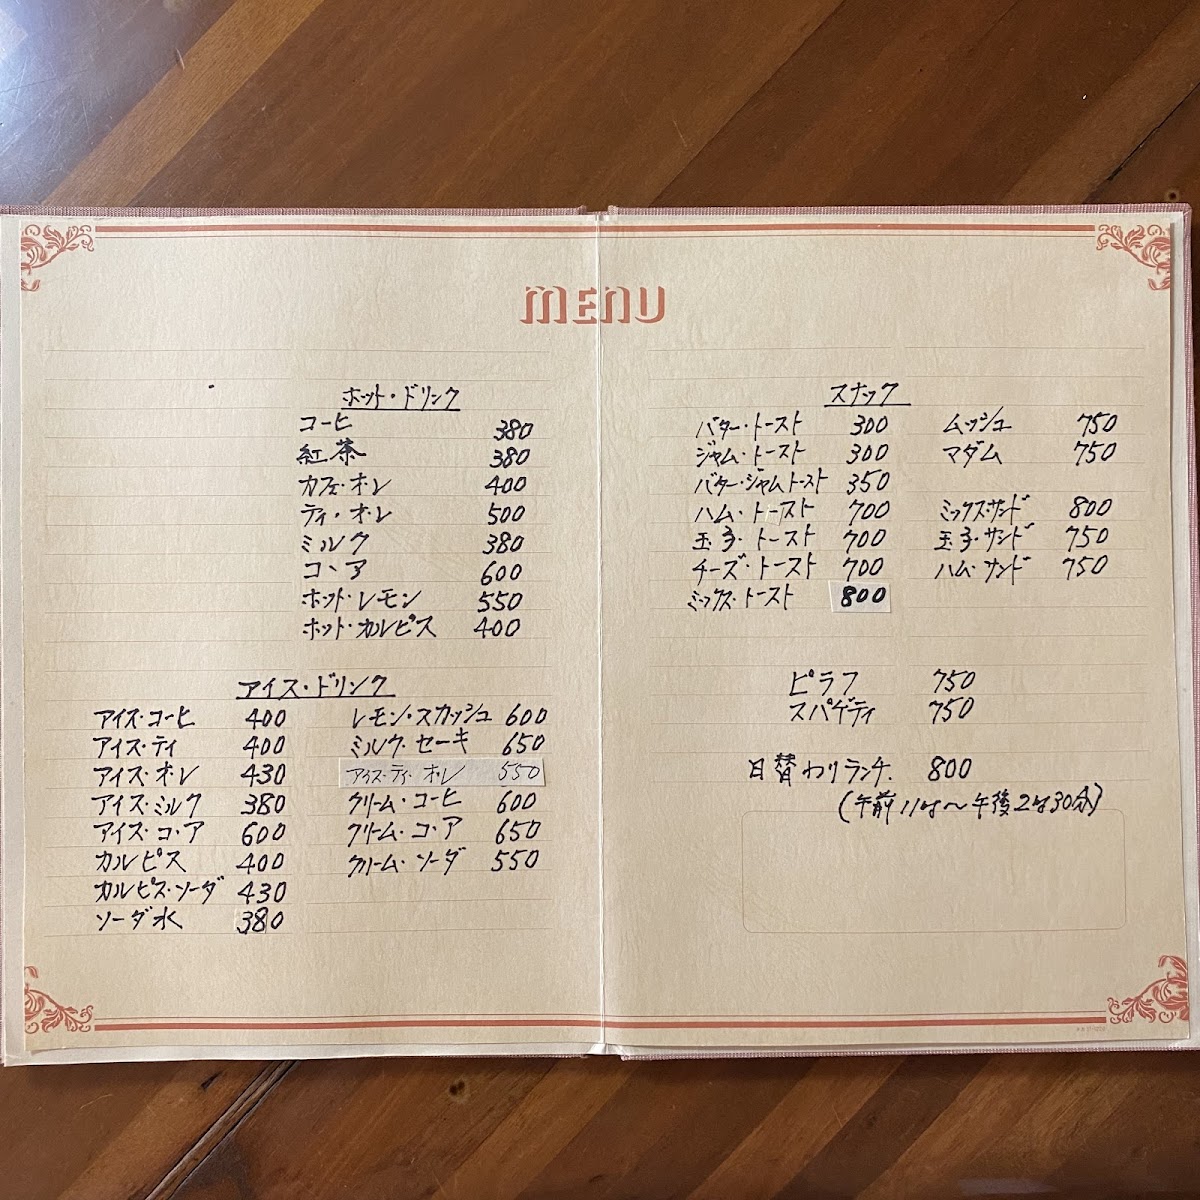 MENU
ホット・ドリンク
コーヒ 380
紅茶 380
カフェ・オ・レ 400
ティ・オ・レ 500
ミルク 380
コヽア 600
ホット・レモン 550
ホット・カルピス 400
アイス・ドリンク
アイス・コーヒ 400
アイス・ティ 400
アイス・オ・レ 430
アイス・ミルク 380
アイス・コヽア 600
カルピス 400
カルピス・ソーダ 430
ソーダ水 380
レモン・スカッシュ 600
ミルク・セーキ 650
アイス・ティ・オ・レ 550
クリーム・コーヒ 600
クリーム・コヽア 650
クリーム・ソーダ 550
スナック
バター・トースト 300
ジャム・トースト 300
バター・ジャムトースト 350
ハム・トースト 700
玉子・トースト 700
チーズ・トースト 700
ミックス・トースト 800
ムッシュ 750
マダム 750
ミックスサンド 800
玉子・サンド 750
ハム・サンド 750
ピラフ 750
スパゲティ 750
日替わりランチ. 800
(午前11時〜午後2時30分)